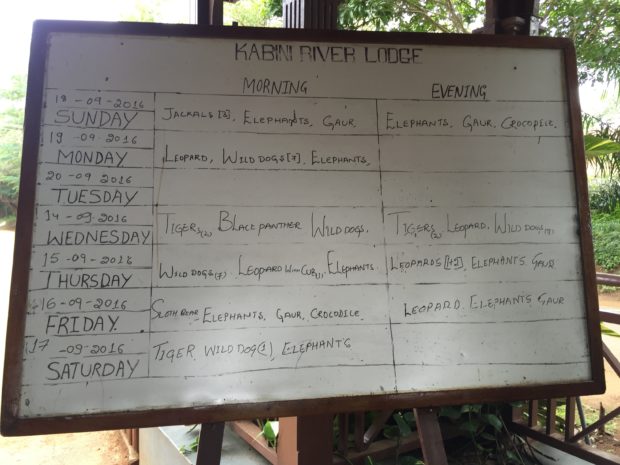 KABINI RIVER LODGE
MORNING EVENING
18-09-2016
SUNDAY JACKALS [3], ELEPHANTS, GAUR, ELEPHANTS, GAUR, CROCODILE.
19-09-2016
MONDAY LEOPARD, WILD DOGS [7], ELEPHANTS,
20-09-2016
TUESDAY
14-09-2016
WEDNESDAY TIGERS(2), BLACK PANTHER WILD DOGS, TIGERS(2), LEOPARD, WILD DOGS
15-09-2016
THURSDAY WILD DOGS(7), LEOPARD WITH CUB(1), ELEPHANTS LEOPARDS ELEPHANTS GAUR
16-09-2016
FRIDAY SLOTH BEAR ELEPHANTS, GAUR, CROCODILE LEOPARD, ELEPHANTS GAUR
17-09-2016
SATURDAY TIGER, WILD DOG(1), ELEPHANTS